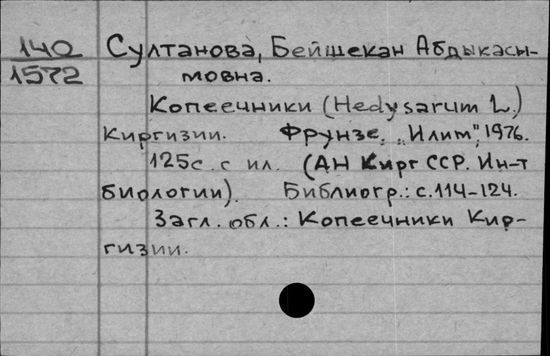 140 Султанова, Бейшекан Абдыкасы-
1572 мовна.
Копеечники (Hedysarum L.)
Киргизии. Фрунзе, „Илим", 1976.
125с. с ил. (АН Кирг ССР. Ин-т
биологии). Библиогр.: с. 114-124.
Загл. обл.: Копеечники Кир-
гизии.